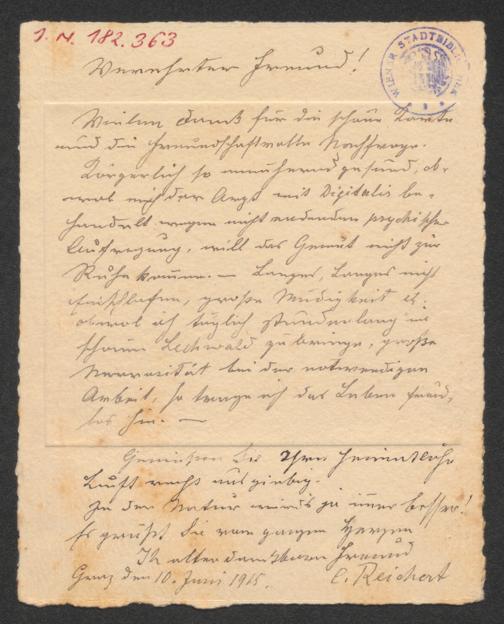 J. N. 182.363
WIENER STADTBIBLIOTHEK
Verehrter Freund!
Vielen Dank für die schöne Karte
und die freundschaftvolle Nachfrage.
Körperlich so annähernd gesund, ob-
wol mich der Arzt mit Digitalis be-
handelt wegen nicht endenden psychischer
Aufregung, will das Gemüt nicht zur
Ruhe kommen. — Langes, Langes nicht
Einschlafen, große Müdigkeit etc.
obwol ich täglich stundenlang im
schönen Lechwald zubringe, große
Nervosität bei der notwendigen
Arbeit, so trage ich das Leben freud-
los hin. —
Genießen Sie Ihre heimatliche
Luft recht ausgiebig.
In der Natur wird's ja immer besser!
Es grüßt Sie vom ganzen Herzen
Ihr alter dankbarer Freund
Graz den 10. Juni 1915. C. Reichert